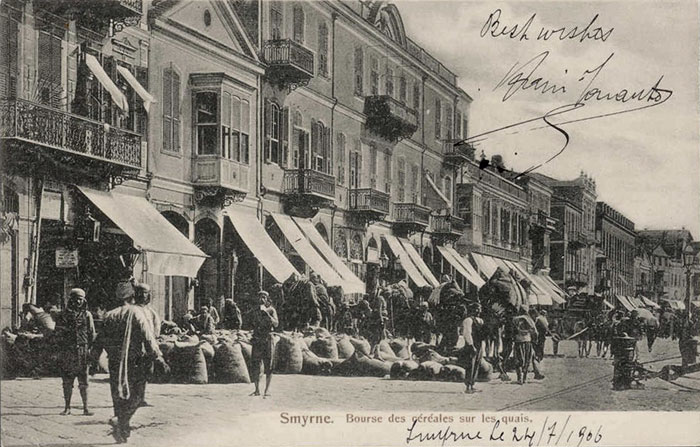 Best wishes
Smyrne. Bourse des céréales sur les quais.
Smyrne le 24/7/1906